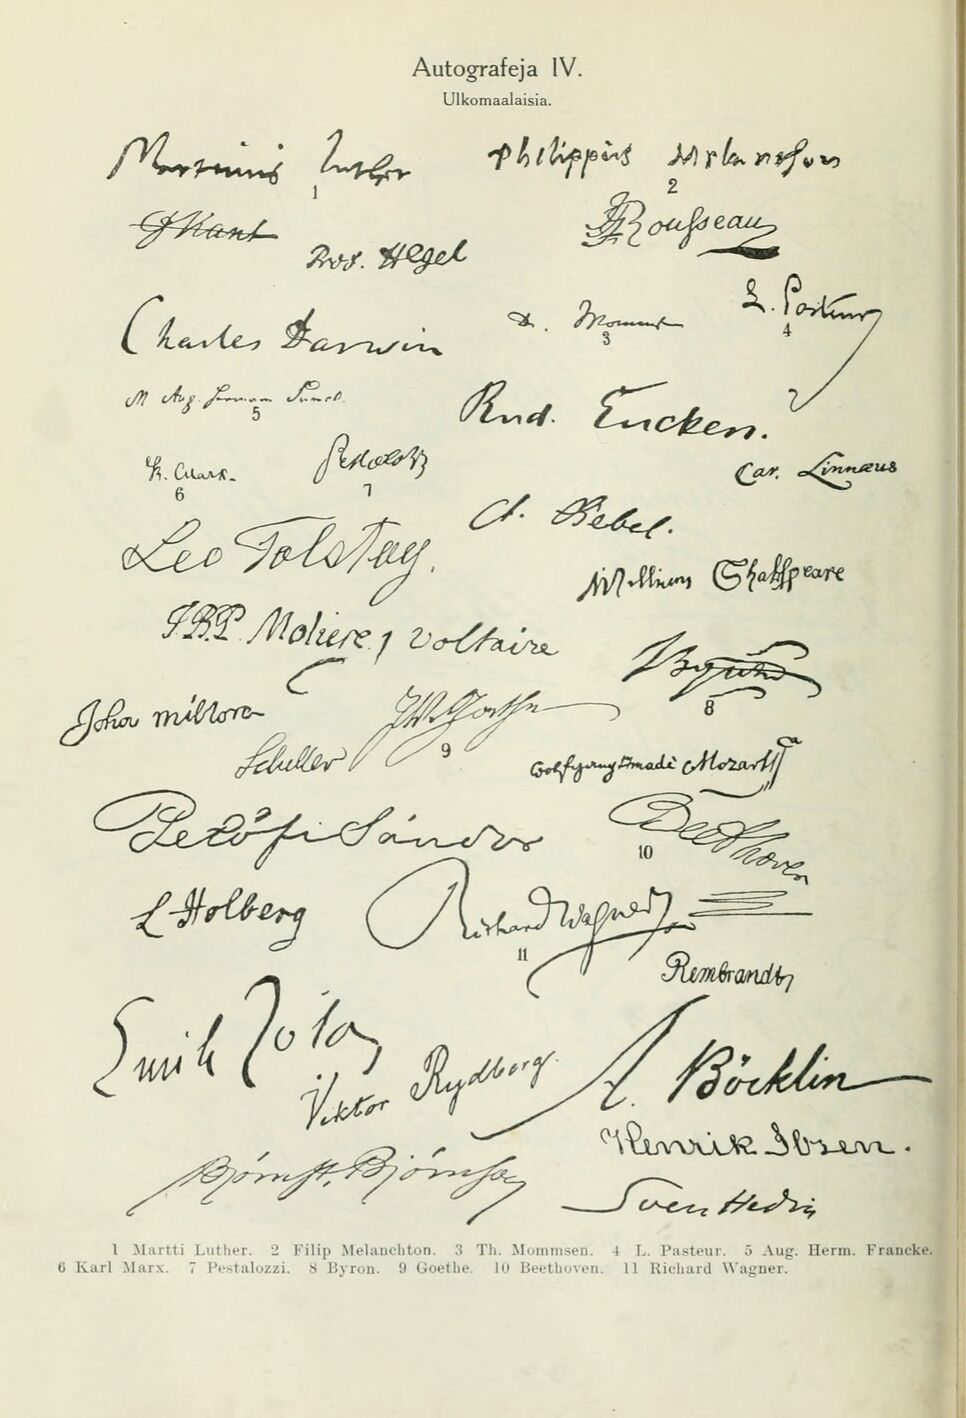 Autografeja IV.
Ulkomaalaisia.
Martinus Luther
1
Philippus Melanthon
2
Kant
Prof. Hegel
Rousseau
Charles Darwin
3
L. Pasteur
4
M Aug. Herman
5
Rud. Eucken.
K. Marx.
6
Pestalozzi
7
Car. Linnæus
A. Bebel.
Leo Tolstoy.
William Shakspeare
J.B.P. Moliere
Voltaire
Byron
8
John Milton
JWGoethe
9
Schiller
Wolfgang Amadè Mozart
Petőfi Sándor
Beethoven
10
L Holberg
Richard Wagner
11
Rembrandt
Emile Zola
Viktor Rydberg.
A. Böcklin
Henrik Ibsen.
Bjørnst. Bjørnson
Sven Hedin
1 Martti Luther. 2 Filip Melanchton. 3 Th. Mommsen. 4 L. Pasteur. 5 Aug. Herm. Francke.
6 Karl Marx. 7 Pestalozzi. 8 Byron. 9 Goethe. 10 Beethoven. 11 Richard Wagner.